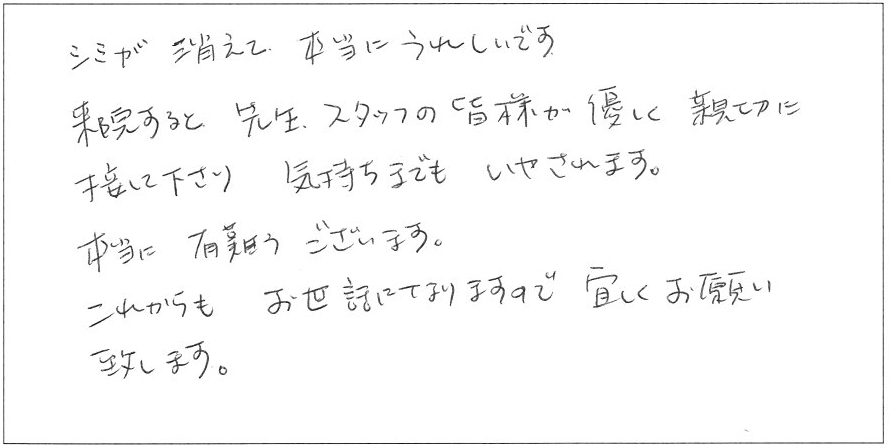 シミが 消えて 本当に うれしいです
来院すると 先生、スタッフの 皆様が 優しく 親切に
接して下さり 気持ちまでも いやされます。
本当に 有難う ございます。
これからも お世話になりますので 宜しく お願い
致します。